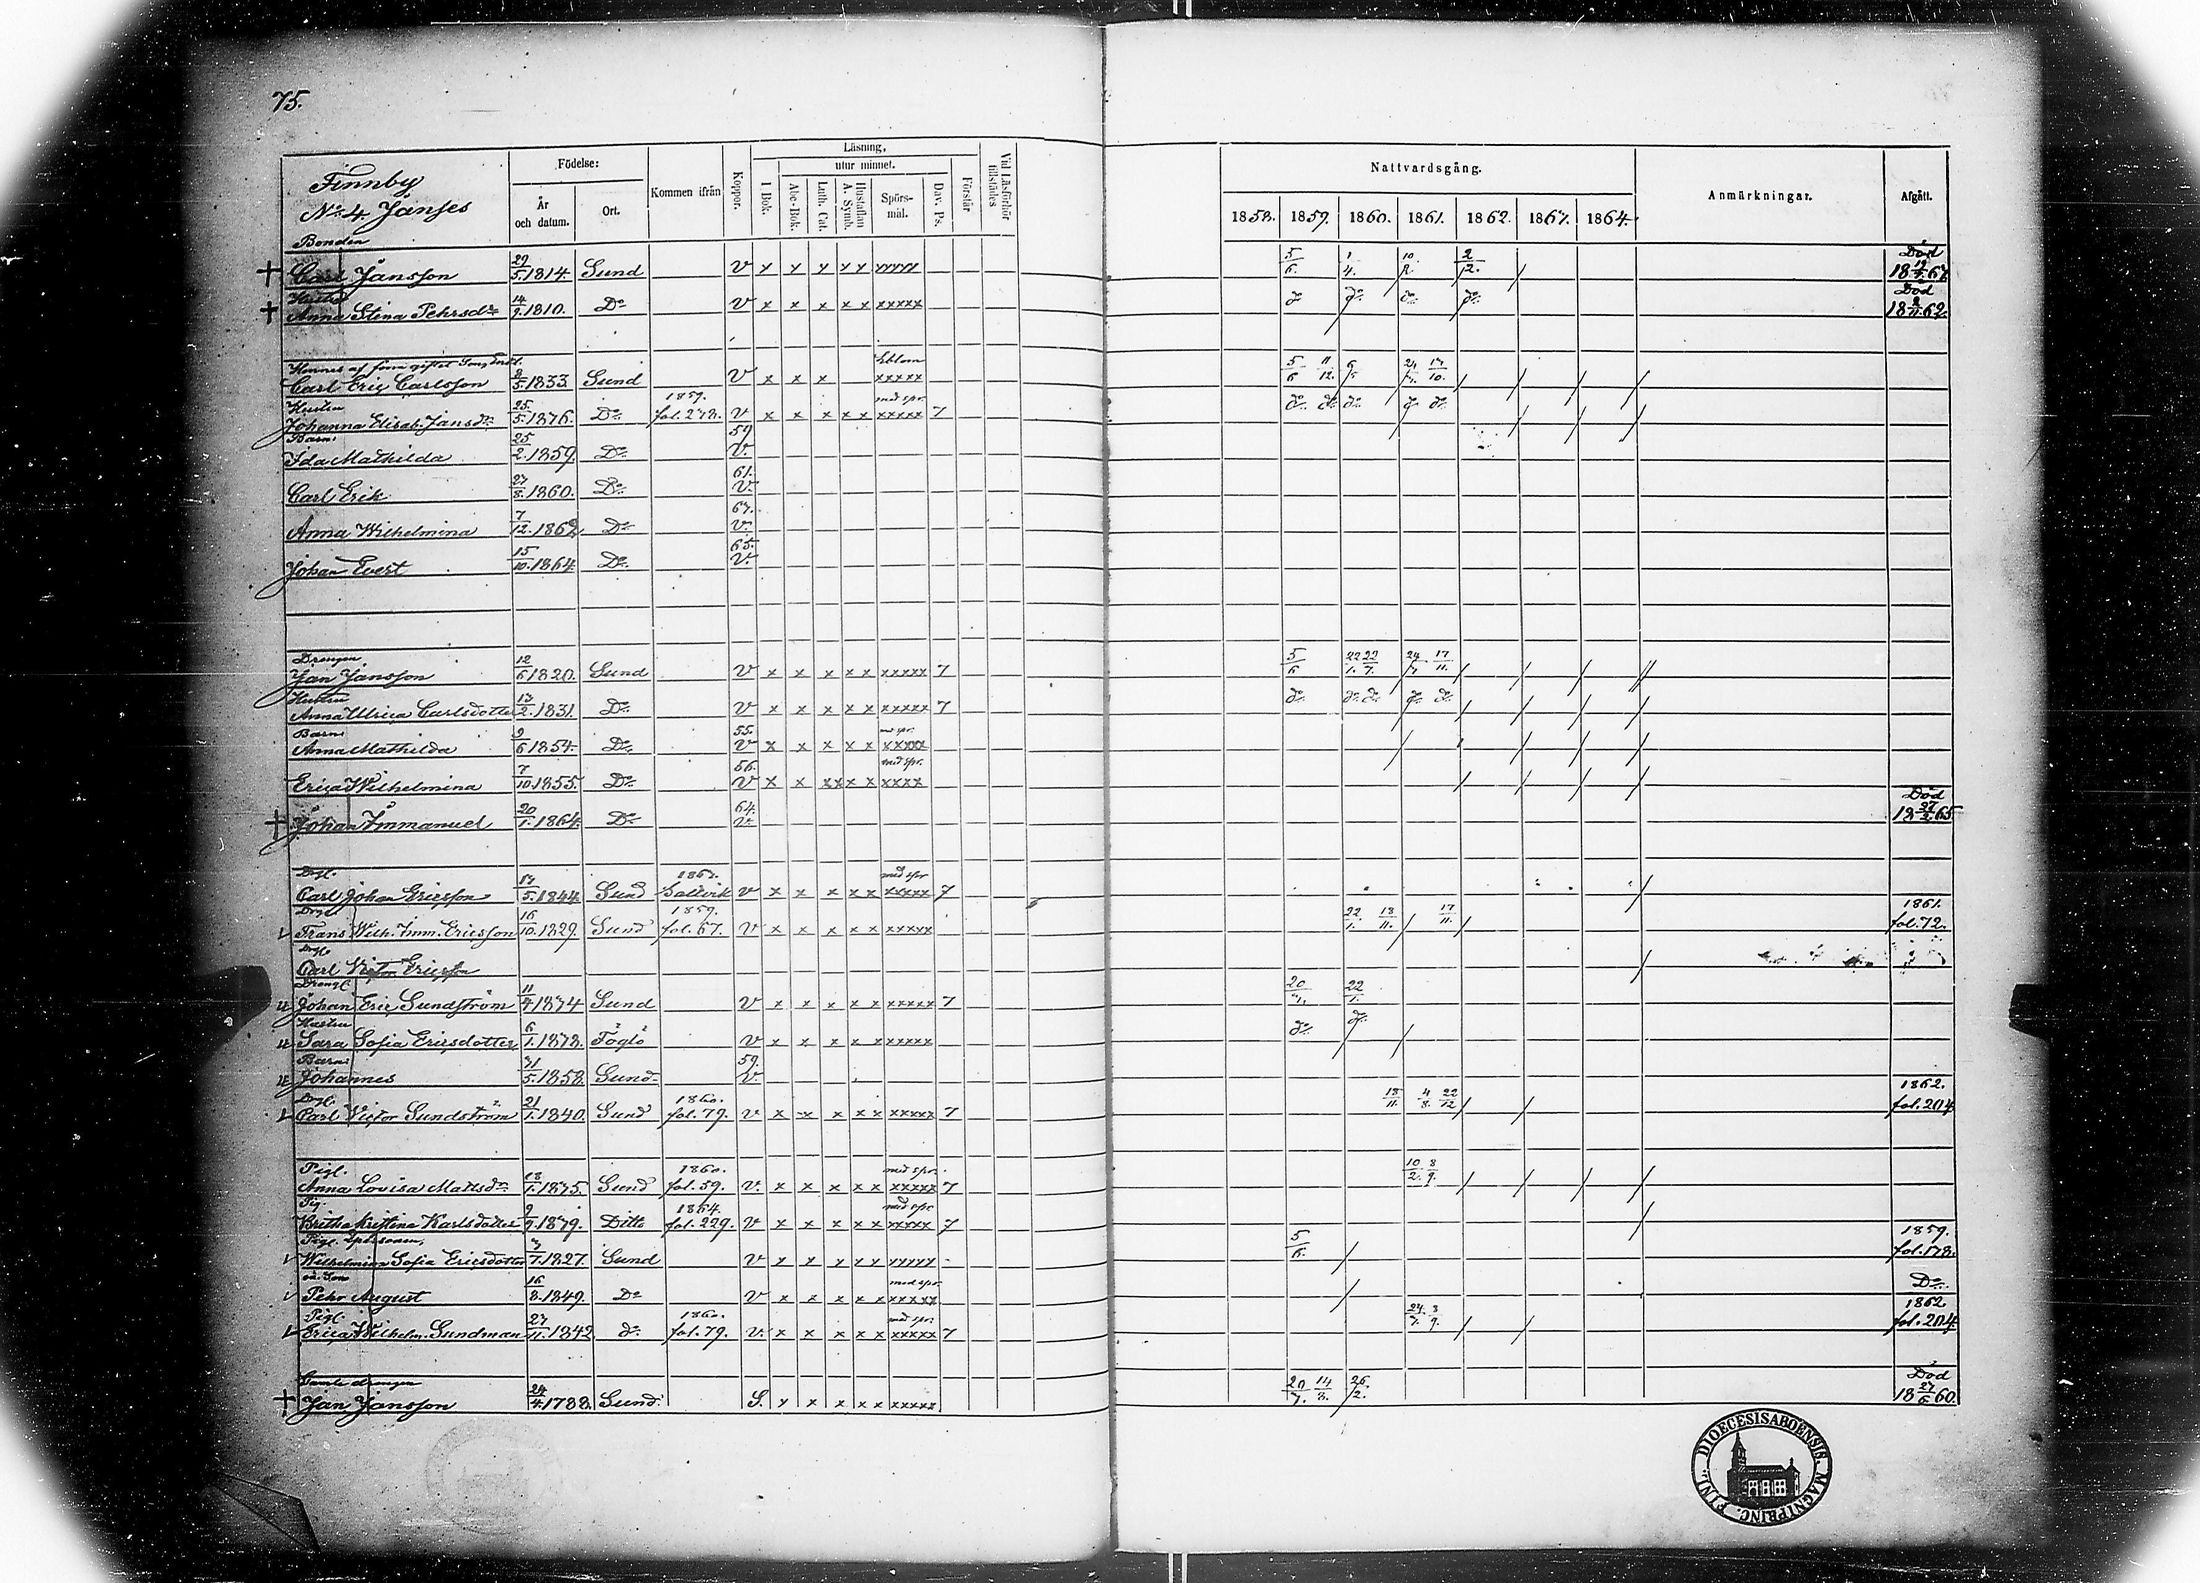 75.
Finnby
No 4 Jänses
Födelse:
År och datum.
Ort.
Kommen ifrån
Koppor.
Läsning,
utur minnet.
I Bok.
Abc-Bok.
Luth. Cat.
Hustaflan A. Symb.
Spörs-mål.
Dav. Ps.
Förstår
Vid Läsförhör tillstädes
Nattvardsgång.
1858. 1859. 1860. 1861. 1862. 1863. 1864.
Anmärkningar.
Afgått.
Bonden
Carl Jansson 29/5 1814. Sund V x x x x x xxxxx 5/6. 1/4. 10/2. 2/2. Död
Hustru
Anna Stina Pehrsdr 14/9 1810. Do V x x x x x xxxxx do do do do Död 62.
Carl Eric Carlsson 8/5 1833. Sund V x x x xxxxx 5/6 11/12. 24/7. 13/10.
Hustru 1859. med spr.
Johanna Elisab. Jansdr 25/5 1836. Do fol. 273. V x x x x x xxxxx 7 do do do do do
Barn: 59
Ida Mathilda 25/2 1859. Do V.
61.
Carl Erik 27/8 1860. Do V.
63.
Anna Wilhelmina 7/12 1862 Do V.
65.
Johan Evert 15/10 1864. Do V.
Drengen
Jan Jansson 12/6 1820. Sund V x x x x x xxxxx 7 5/6 22/1. 22/7. 24/7 17/11.
Hustru
Anna Ulrica Carlsdotter 13/2. 1831. Do V x x x x x xxxxx 7 do do do do do
Barn: 55. med spr.
Anna Mathilda 9/6 1854. Do V x x x x x xxxxx
56. med spr.
Erica Wilhelmina 7/10 1855. Do V x x x x x x xxxx
64.
Johan Immanuel 20/1. 1864. Do V. Död 27/2 65
Drgl. 1863. med spr
Carl Johan Ericsson 13/5. 1844. Sund V x x x x x xxxxx 7
Drgl. 1859.
Frans Wilh. Imm. Ericsson 16/10. 1829. Sund fol. 67. V x x x x x xxxxx 22/1. 18/11. 17/11. 1861. fol. 72.
Drgl.
Carl Victor Ericsson
Drengl.
Johan Eric Sundström 11/4 1834 Sund V x x x x x xxxxx 7 20/ 22/1.
Hustru
Sara Sofia Ericsdotter 6/1. 1833. Föglö V x x x x xxxxxx do do
Barn: 59.
Johannes 31/5. 1858. Sund V.
Drgl. 1860.
Carl Victor Sundström 21/1. 1840. Sund fol. 79. V x x x x x xxxxx 7 18/11. 4/8. 22/12 1862. fol. 204
Pigl. 1860. med spr.
Anna Lovisa Mattsdr 18/1. 1835. Sund fol. 59. V. x x x x x xxxxx 7 10/2. 8/9.
Pig 1864. med spr
Britha Kristina Karlsdotter 9/9. 1839. Ditto fol. 229. V x x x x x xxxxx 7
Pigl.
Wilhelmina Sofia Ericsdotter 3/7. 1827. Sund V x x x x x xxxxx 5/6. 1859. fol. 173.
oä. Son med spr.
Pehr August 16/8. 1849. Do V x x x x x xxxxx Do
Pigl. 1860. med spr.
Erica Wilhelm. Sundman 27/11. 1842 do fol. 79. V. x x x x x xxxxx 7 24/7. 8/9. 1862 fol. 204
Gamle drengen
Jan Jansson 24/4. 1788. Sund S. x x x x x xxxxx 20/7. 14/8. 26/2. Död 18 27/6 60.
DIOECESIS ABOENSIS. MAGNI PRINC. FINL.